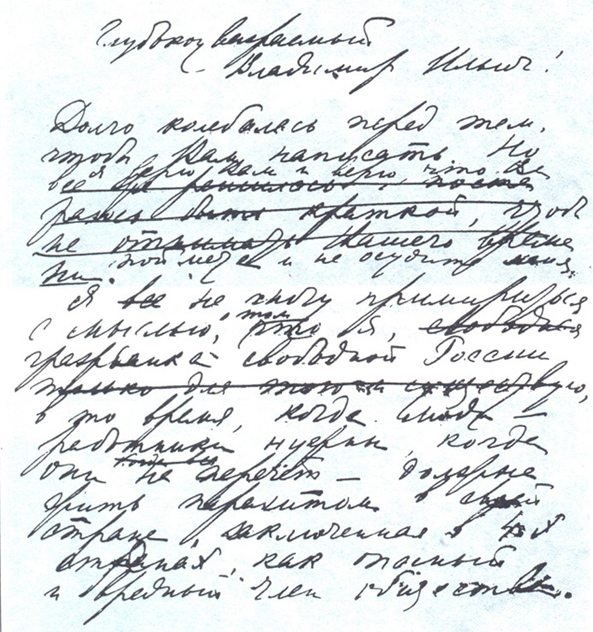 Глубокоуважаемый
Владимир Ильич!
Долго колебалась перед тем,
чтобы Вам написать. Но
я верю Вам и верю, что Вы
все же решилась. поста
раюсь быть краткой, чтоб
не отнимать Вашего време
ни. поймете и не осудите меня.
Я все не могу примириться
с мыслью, что я, свободная
гражданка свободной России
только для того и существую,
в то время, когда люди –
работники нужны, когда
они на перечет –
паразитом в своей
стране, заключенная в 4х
стенах, как опасный
и вредный член общества.